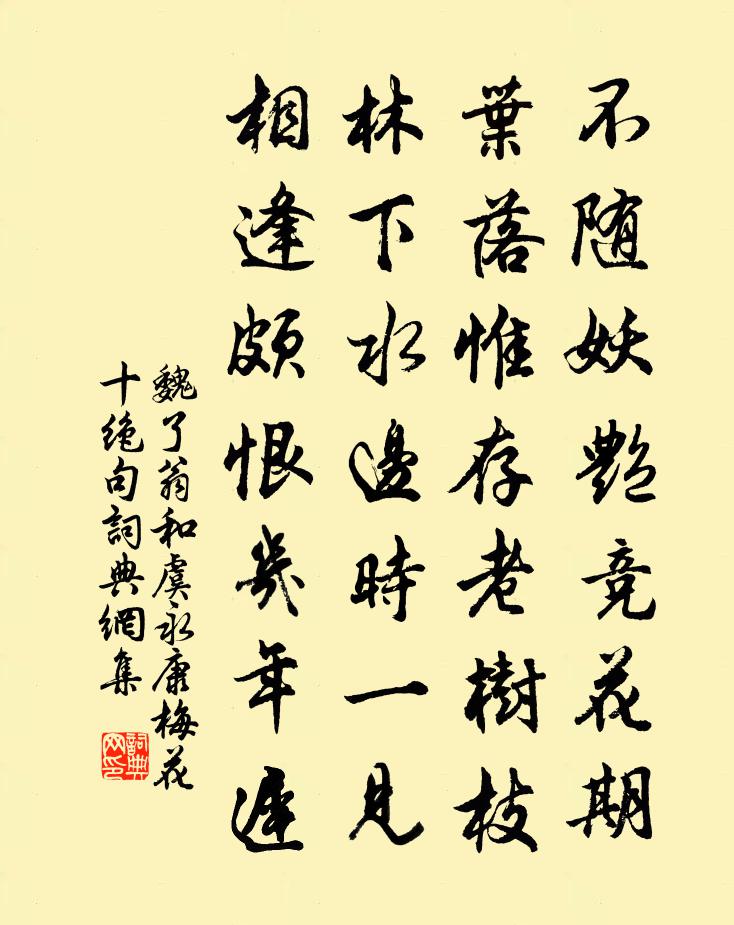 不随妖艷竞花期
葉落惟存老樹枝
林下水邊時一見
相逢頗恨幾年遲
魏了翁和虞永康梅花
十絶句詞典網集
詞典
网印